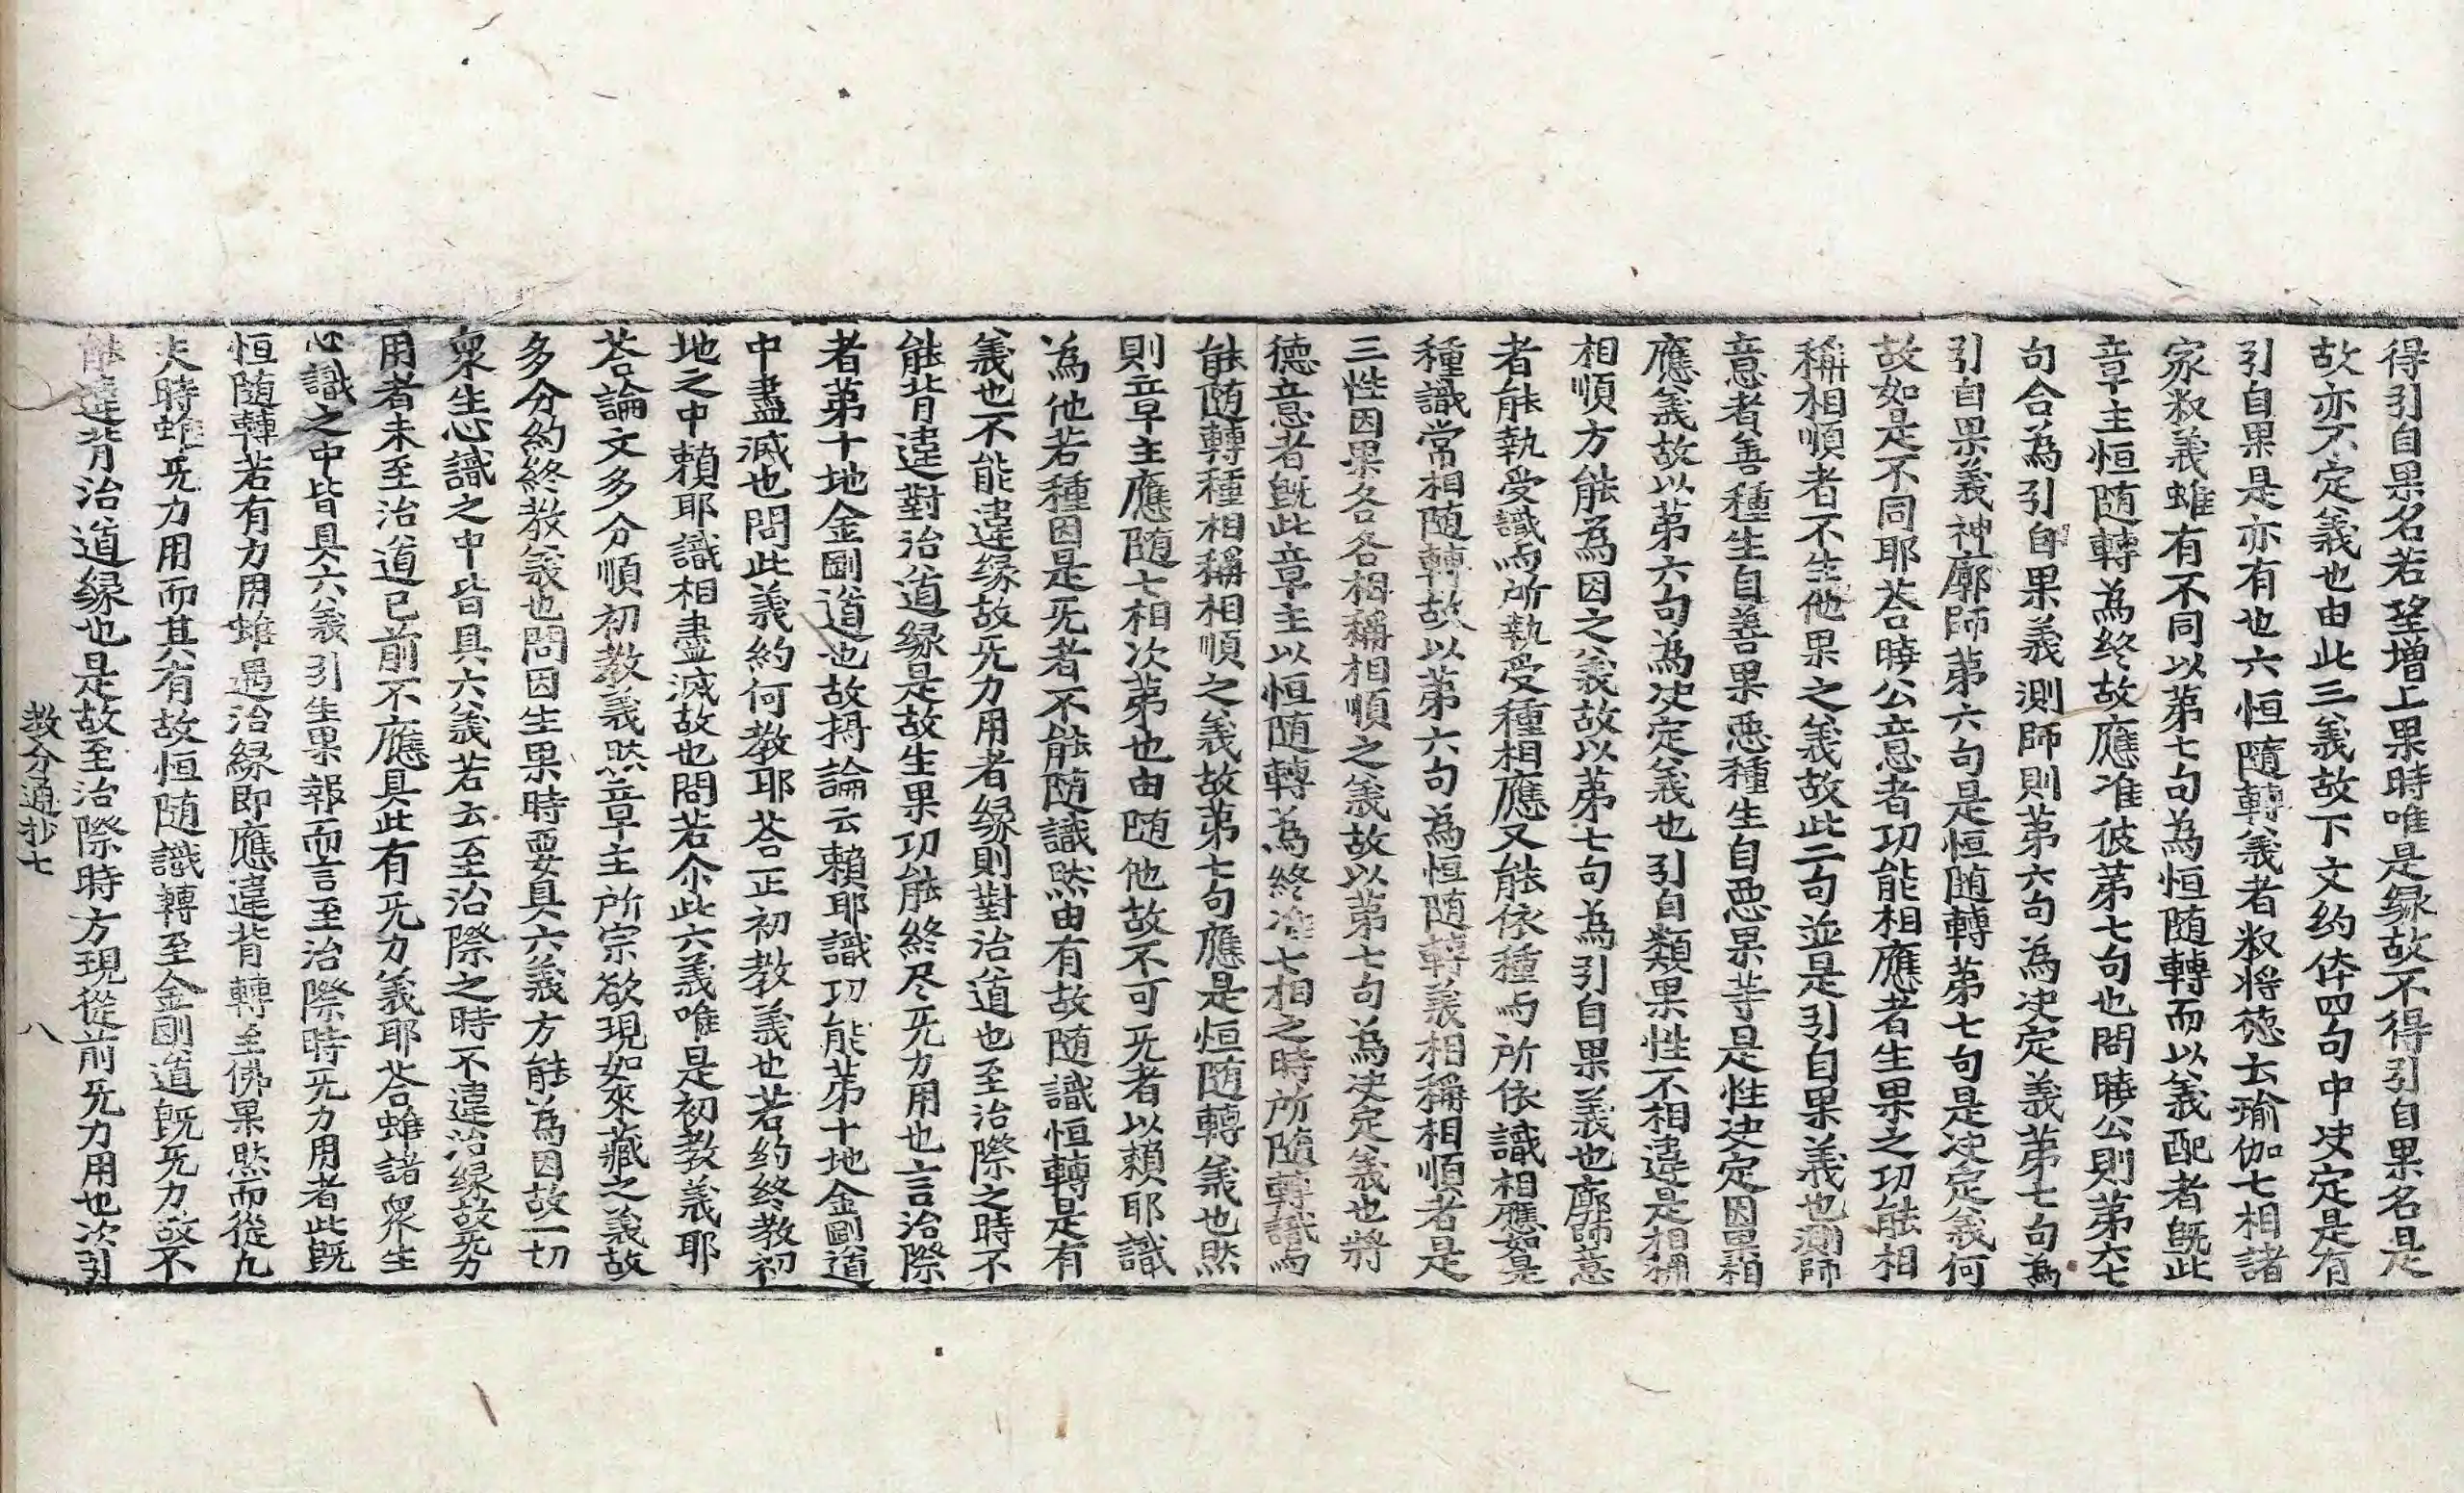 得引自果名若望增上果時唯是縁故不得引自果名是
故亦不定義也由此三義故下文約体四句中决定是有
引自果是亦有也六恒隨轉義者㪽將徳云瑜伽七相諸
家㪽義雖有不同以第七句為恒随轉而以義配者旣此
章主恒随轉為終故應准彼第七句也問曉公則第六七
句合為引自果義測師則第六句為决定義第七句為
引自果義神廓師第六句是恒随轉第七句是决定義何
故如是不同耶荅曉公意者功能相應者生果之功能相
稱相順者不生他果之義故此二句並是引自果義也測師
意者善種生自善果悪種生自悪果等是性决定因果相
應義故以第六句為决定義也引自類果性不相違是相稱
相順方能為因之義故以第七句為引自果義也廓師意
者能執受識与所執受種相應又能依種与所依識相應如是
種識常相随轉故以第六句為恒随轉義相稱相順者是
三性因果各各相稱相順之義故以第七句為决定義也將
徳意者旣此章主以恒随轉為終准七相之時所隨轉識与
能随轉種相稱相順之義故第七句應是恒随轉義也然
則章主應随七相次第也由随他故不可旡者以賴耶識
為他若種因是旡者不能隨識然由有故随識恒轉是有
義也不能違縁故旡力用者縁則對治道也至治際之時不
能背違對治道縁是故生果功能終尽旡力用也言治際
者第十地金剛道也故摂論云賴耶識功能第十地金剛道
中盡滅也問此義約何教耶荅正初教義也若約終教初
地之中賴耶識相盡滅故也問若尒此六義唯是初教義耶
荅論文多分順初教義然章主所宗欲現如來藏之義故
多分約終教義也問因生果時要具六義方能為因故一切
衆生心識之中皆具六義若云至治際之時不違治縁故旡力
用者未至治道已前不應具此有旡力義耶荅雖諸衆生
心識之中皆具六義引生果報而言至治際時旡力用者此旣
恒随轉若有力用雖遇治縁即應違背轉至佛果然而從九
夫時雖旡力用而其有故恒随識轉至金剛道旣旡力故不
能違背治道縁也是故至治際時方現從前旡力用也次引
教分通抄七 八